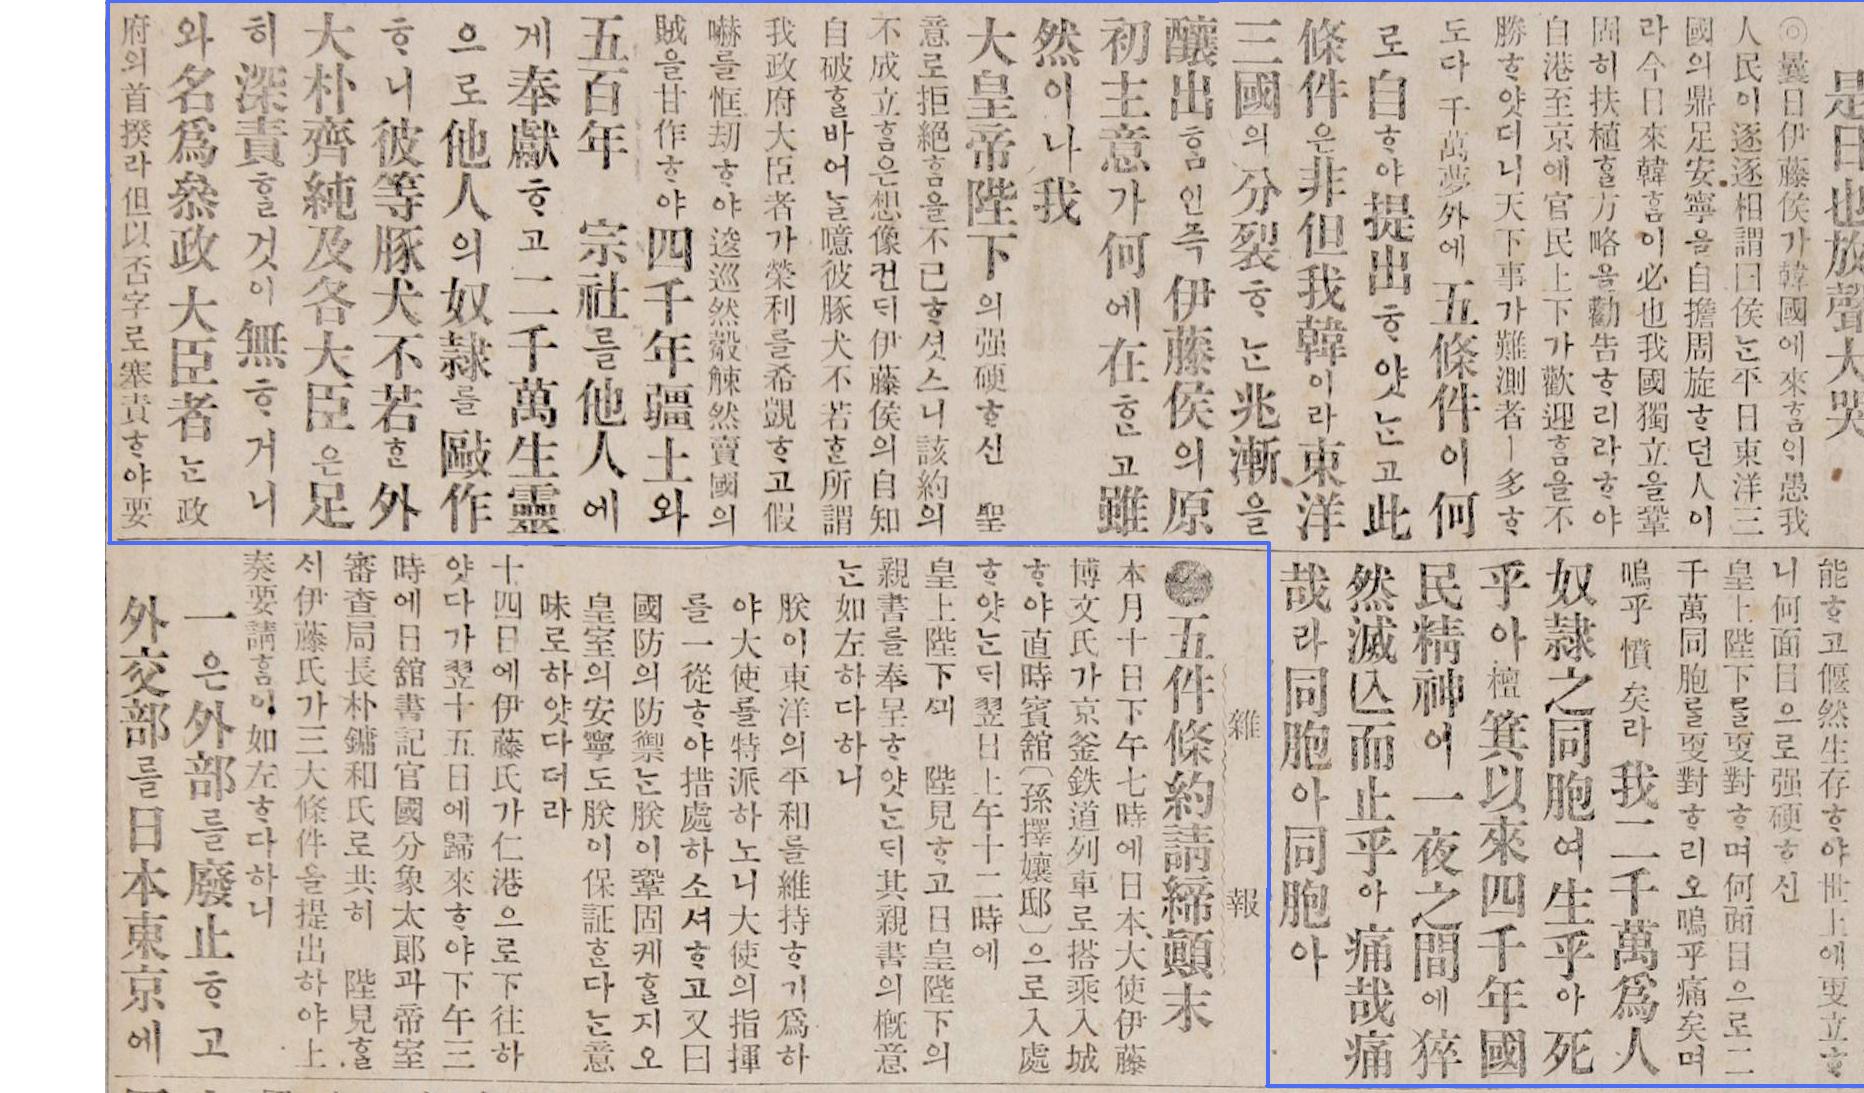 是日也放聲大哭
◎曩日伊藤侯가韓國에來ᄒᆞᆷᄋᆡ愚我
人民이逐逐相謂曰侯ᄂᆞᆫ平日東洋三
國의鼎足安寧을自擔周旋ᄒᆞ던人이
라今日來韓ᄒᆞᆷ이必也我國獨立을鞏
固히扶植ᄒᆞᆯ方略을勸告ᄒᆞ리라ᄒᆞ야
自港至京에官民上下가歡迎ᄒᆞᆷ을不
勝ᄒᆞ얏더니天下事가難測者ㅣ多ᄒᆞ
도다千萬夢外에五條件이何
로自ᄒᆞ야提出ᄒᆞ얏ᄂᆞᆫ고此
條件은非但我韓이라東洋
三國의分裂ᄒᆞᄂᆞᆫ兆漸을
釀出ᄒᆞᆷ인즉伊藤侯의原
初主意가何에在ᄒᆞᆫ고雖
然이나我
大皇帝陛下의强硬ᄒᆞ신 聖
意로拒絶ᄒᆞᆷ을不已ᄒᆞ셧스니該約의
不成立ᄒᆞᆷ은想像컨ᄃᆡ伊藤侯의自知
自破ᄒᆞᆯ바어ᄂᆞᆯ噫彼豚犬不若ᄒᆞᆫ所謂
我政府大臣者가榮利를希覬ᄒᆞ고假
嚇를恇刧ᄒᆞ야逡巡然觳觫然賣國의
賊을甘作ᄒᆞ야四千年疆土와
五百年 宗社를他人에
게奉獻ᄒᆞ고二千萬生靈
으로他人의奴隷를敺作
ᄒᆞ니彼等豚犬不若ᄒᆞᆫ外
大朴齊純及各大臣은足
히深責ᄒᆞᆯ것이無ᄒᆞ거니
와名爲叅政大臣者ᄂᆞᆫ政
府의首揆라但以否字로塞責ᄒᆞ야要
能ᄒᆞ고偃然生存ᄒᆞ야世上에更立ᄒᆞ
니何面目으로强硬ᄒᆞ신
皇上陛下를更對ᄒᆞ며何面目으로二
千萬同胞를更對ᄒᆞ리오嗚乎痛矣며
嗚乎憤矣라我二千萬爲人
奴隷之同胞여生乎아死
乎아檀箕以來四千年國
民精神이一夜之間에猝
然滅亾而止乎아痛哉痛
哉라同胞아同胞아
雜報
五件條約請締顚末
本月十日下午七時에日本大使伊藤
博文氏가京釜鉄道列車로搭乘入城
ᄒᆞ야直時賓舘(孫擇孃邸)으로入處
ᄒᆞ얏ᄂᆞᆫᄃᆡ翌日上午十二時에
皇上陛下ᄭᅴ 陛見ᄒᆞ고日皇陛下의
親書를奉呈ᄒᆞ얏ᄂᆞᆫᄃᆡ其親書의槪意
ᄂᆞᆫ如左하다하니
朕이東洋의平和를維持ᄒᆞ기爲하
야大使를特派하노니大使의指揮
를一從ᄒᆞ야措處하소셔ᄒᆞ고又曰
國防의防禦ᄂᆞᆫ朕이鞏固케ᄒᆞᆯ지오
皇室의安寧도朕이保証ᄒᆞᆫ다ᄂᆞᆫ意
味로하얏다더라
十四日에伊藤氏가仁港으로下往하
얏다가翌十五日에歸來ᄒᆞ야下午三
時에日舘書記官國分象太郞과帝室
審査局長朴鏞和氏로共히 陛見ᄒᆞᆯ
ᄉᆡ伊藤氏가三大條件을提出하야上
奏要請ᄒᆞᆷ이如左ᄒᆞ다하니
一은外部를廢止ᄒᆞ고
外交部를日本東京에